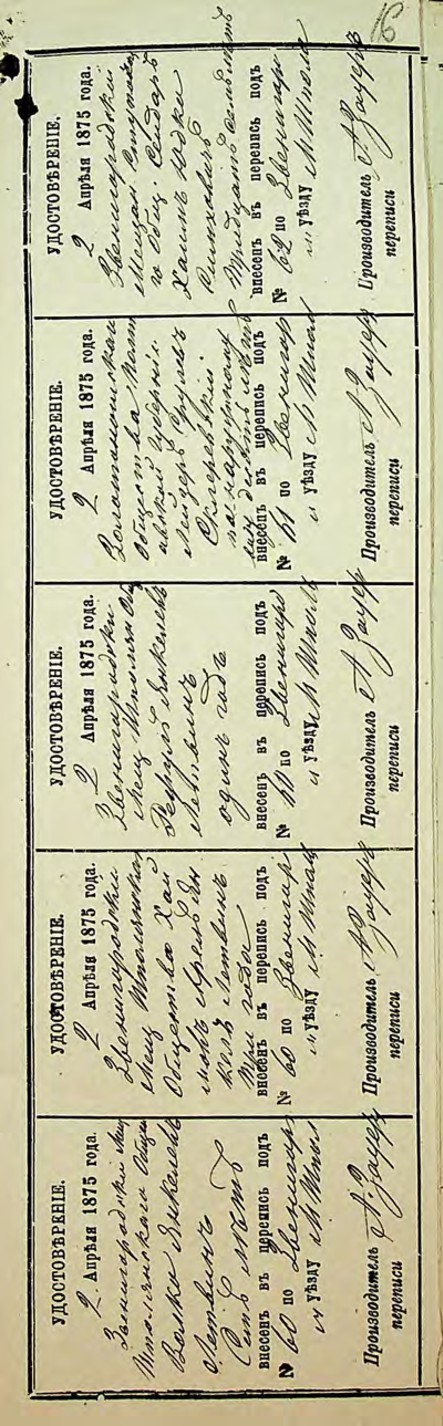 16
УДОСТОВѢРЕНІЕ.
2 Апрѣля 1875 года.
Звенигородскій Мещ
Шполянскаго Общ
Волко Янкелевъ
Летвинъ
Семь лѣтъ
внесенъ въ перепись подъ
№ 60 по Звенигор
уѣзду М Шпол
Производитель А. Зауеръ
переписи
УДОСТОВѢРЕНІЕ.
2 Апрѣля 1875 года.
Звенигородскій
Мещ Шполянскаго
Общества
Летвинъ
три года
внесенъ въ перепись подъ
№ 60 по Звенигор
уѣзду М Шпол
Производитель А Зауеръ
переписи
УДОСТОВѢРЕНІЕ.
2 Апрѣля 1875 года.
Звенигородскій
Мещ Шполян Общ
Янкелевъ
Летвинъ
одинъ годъ
внесенъ въ перепись подъ
№ 60 по Звенигор
уѣзду М Шпола
Производитель А Зауеръ
переписи
УДОСТОВѢРЕНІЕ.
2 Апрѣля 1875 года.
Общества Полт
авской Губерніи
Лейзеръ Сруль
внесенъ въ перепись подъ
№ 61 по Звенигор
уѣзду М Шпол
Производитель А Зауеръ
переписи
УДОСТОВѢРЕНІЕ.
2 Апрѣля 1875 года.
Звенигородскій
Мещан
го Общ.
Хаимъ
тридцать семь лѣтъ
внесенъ въ перепись подъ
№ 62 по Звенигор
уѣзду М Шпола
Производитель А. Зауеръ
переписи